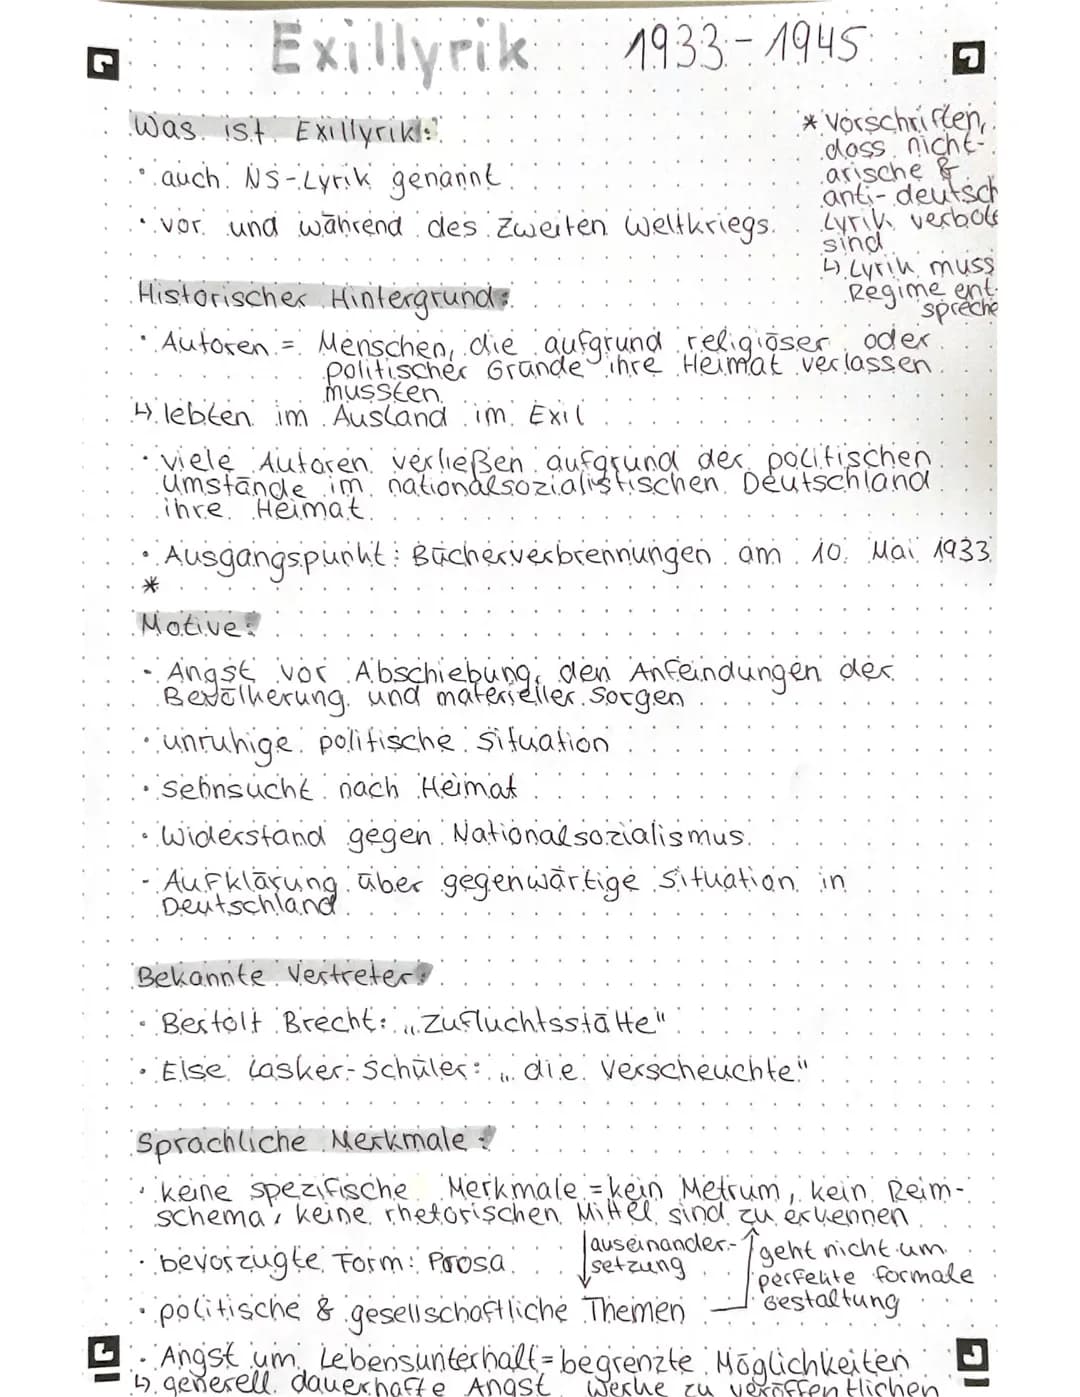 Exillyrik 1933-1945
Was ist Exillyrik:
· auch NS-Lyrik genannt
· vor und während des Zweiten Weltkriegs.
* Vorschriften,
dass nicht-
arische &
anti-deutsch
Lyrik verbote
sind
↳ Lyrik muss
Regime ent-
spreche
Historischer Hintergrund:
· Autoren = Menschen, die aufgrund religiöser oder
politischer Gründe ihre Heimat verlassen
mussten
↳ lebten im Ausland im Exil
· viele Autoren verließen aufgrund der politischen
Umstände im nationalsozialistischen Deutschland
ihre Heimat
· Ausgangspunkt: Bücherverbrennungen am 10. Mai 1933
*
Motive:
- Angst vor Abschiebung, den Anfeindungen der
Bevölkerung und materieller Sorgen
· unruhige politische Situation
· Sehnsucht nach Heimat
· Widerstand gegen Nationalsozialismus.
- Aufklärung über gegenwärtige Situation in
Deutschland
Bekannte Vertreter:
· Bertolt Brecht: „Zufluchtsstätte"
· Else Lasker-Schüler: „die Verscheuchte"
Sprachliche Merkmale:
· keine spezifische Merkmale = kein Metrum, kein Reim-
schema, keine rhetorischen Mittel sind zu erkennen
· bevorzugte Form: Prosa
auseinander-
setzung
geht nicht um
perfekte formale
Gestaltung
· politische & gesellschaftliche Themen
- Angst um Lebensunterhalt = begrenzte Möglichkeiten
↳ generell dauerhafte Angst Werke zu veröffentlichen